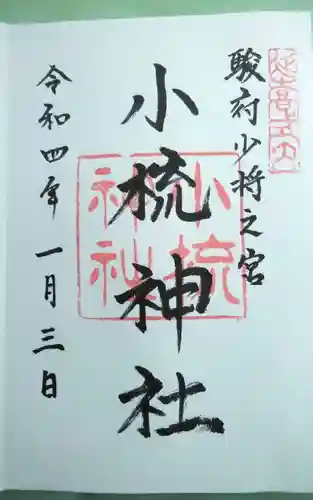 駿府少将之宮
小梳神社
令和四年一月三日
小梳神社